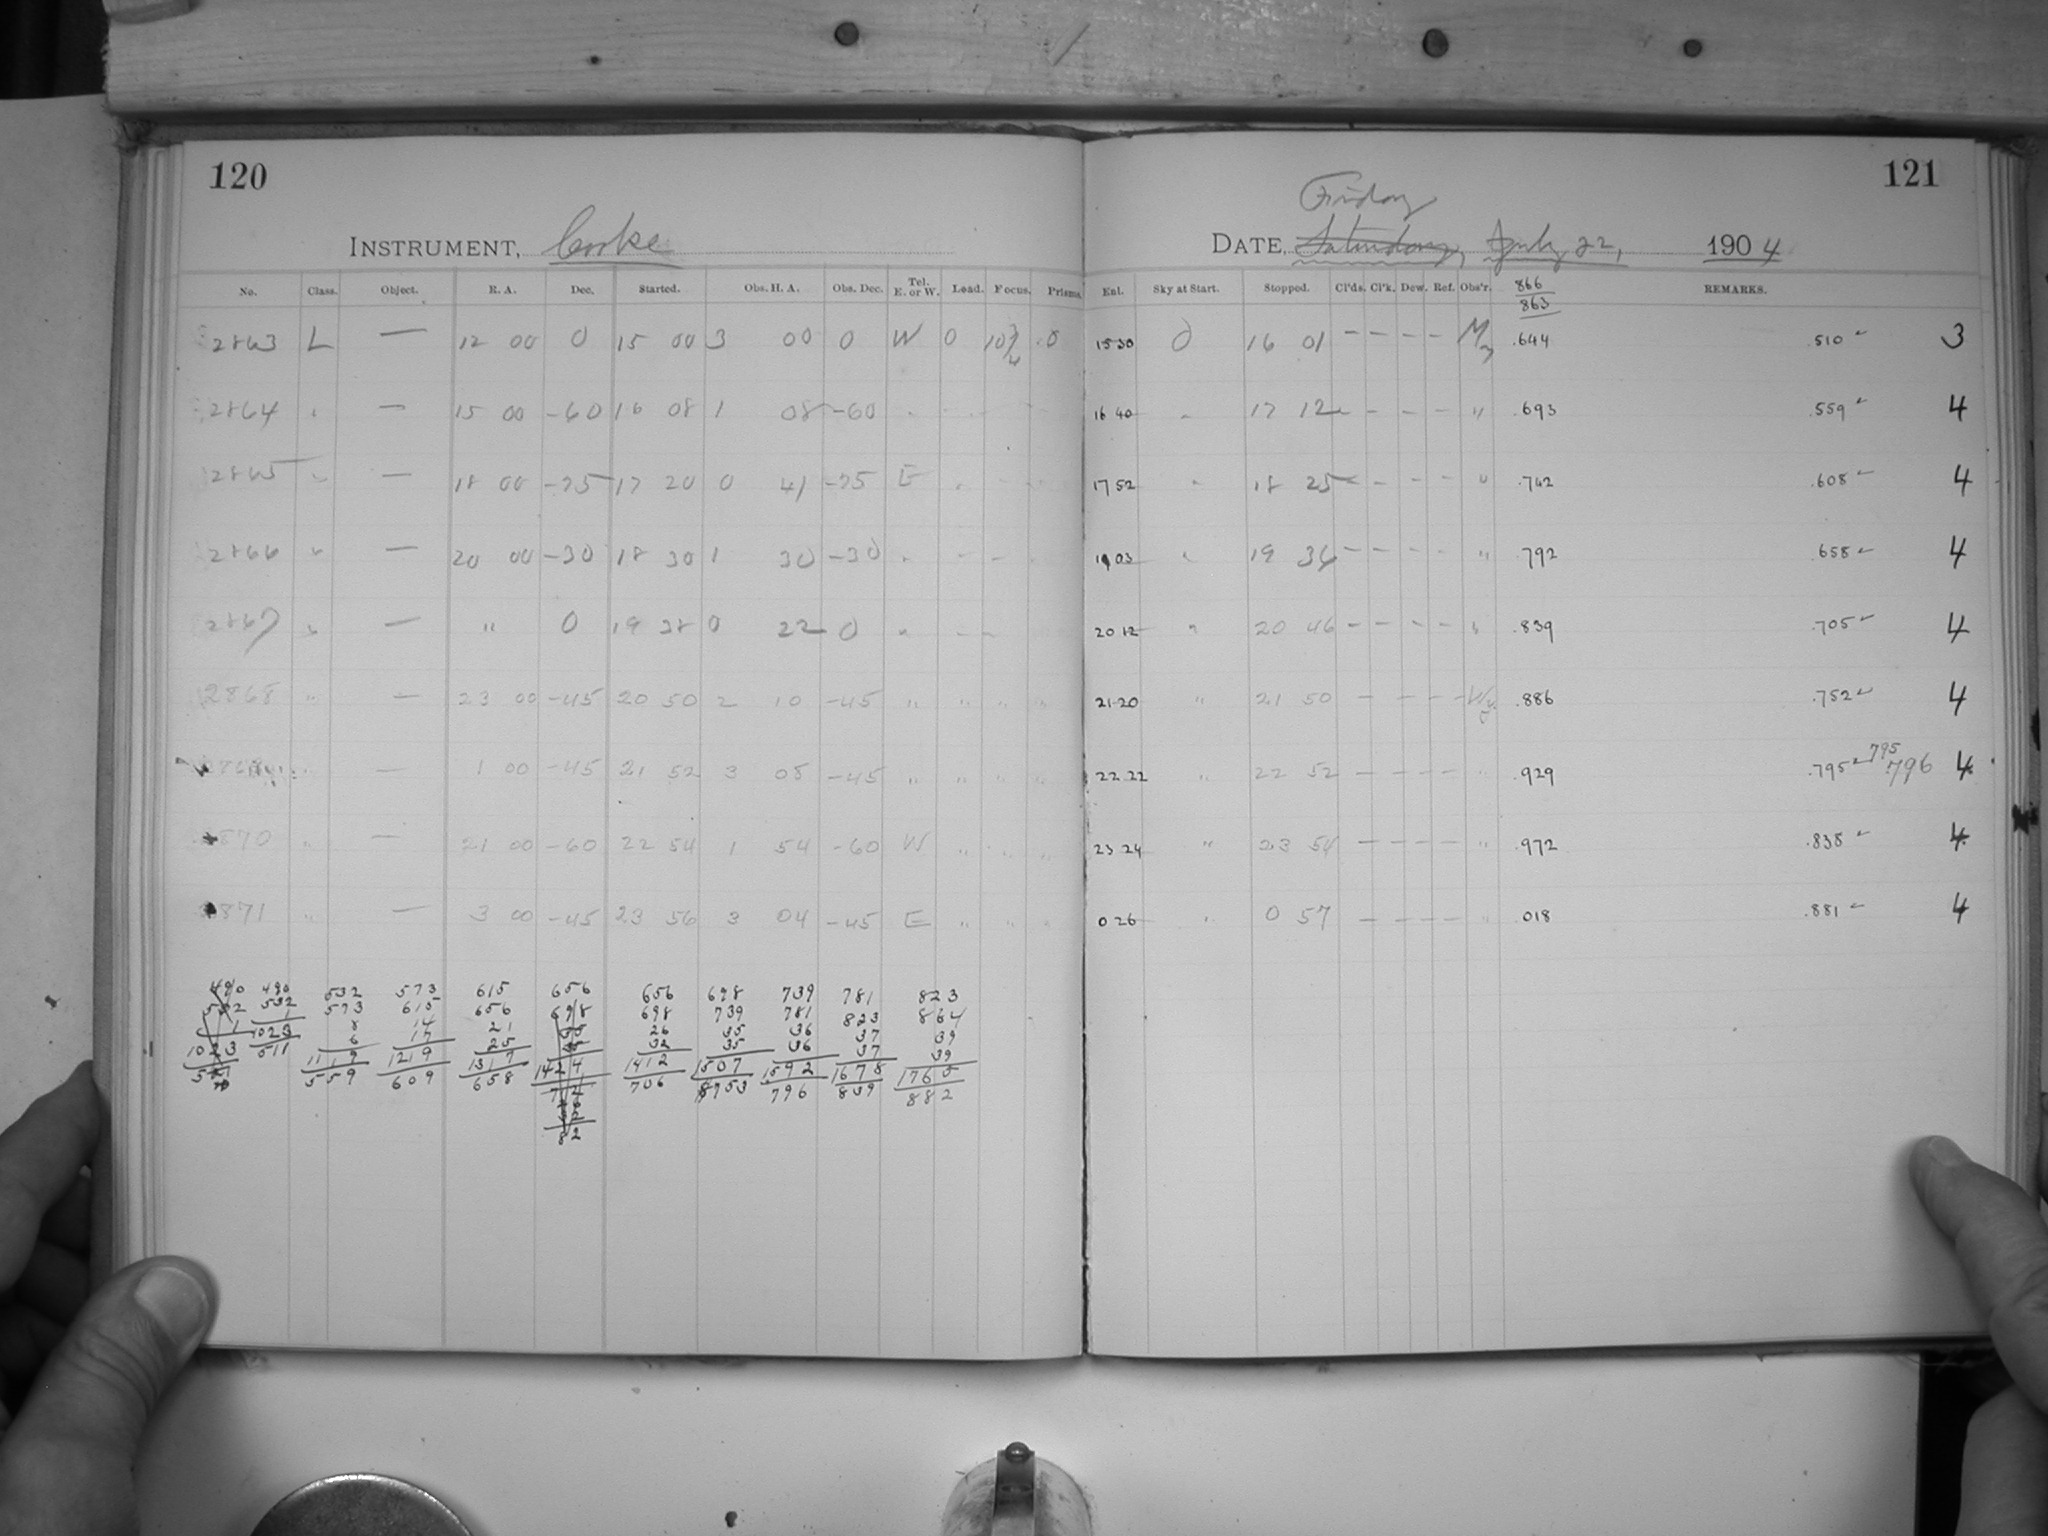 120
INSTRUMENT, Cooke
No. Class. Object. R. A. Dec. Started. Obs. H. A. Obs. Dec. Tel. E. or W. Lead. Focus. Prisms.
2863 L — 12 00 0 15 00 3 00 0 W 0 10 3/4 0
2864 " — 15 00 -60 16 08 1 08 -60
2865 " — 18 00 -25 17 20 0 41 -25 E
2866 " — 20 00 -30 18 30 1 30 -30
2867 " — " 0 19 38 0 22 0 "
2868 " — 23 00 -45 20 50 2 10 -45 " " " "
— 1 00 -45 21 52 3 08 -45 " " " "
870 " — 21 00 -60 22 54 1 54 -60 W " " "
871 " — 3 00 -45 23 56 3 04 -45 E " " "
490 490 532 573 615 656 656 698 739 781 823
532 532 573 615 656 698 698 739 781 823 864
1 1 8 14 21 26 35 36 37 39
6 17 25 32 35 36 37 39
1023 1023 1119 1219 1317 1424 1412 1507 1592 1678 1765
511 559 609 658 706 753 796 839 882
82
121
Friday
DATE, Saturday, April 22, 1904
Enl. Sky at Start. Stopped. Cl'ds. Cl'k. Dew. Ref. Obs'r. 866 REMARKS.
863
15 30 0 16 01 — — — — .644 .510 3
16 40 " 17 12 — — — — " .693 .559 4
17 52 " 18 25 — — — — " .742 .608 4
19 03 " 19 36 — — — — " .792 .658 4
20 12 " 20 46 — — — — " .839 .705 4
21 20 " 21 50 — — — — .886 .752 4
22 22 " 22 52 — — — — " .929 .795 795 796 4
23 24 " 23 54 — — — — " .972 .838 4
0 26 " 0 57 — — — — " .018 .881 4